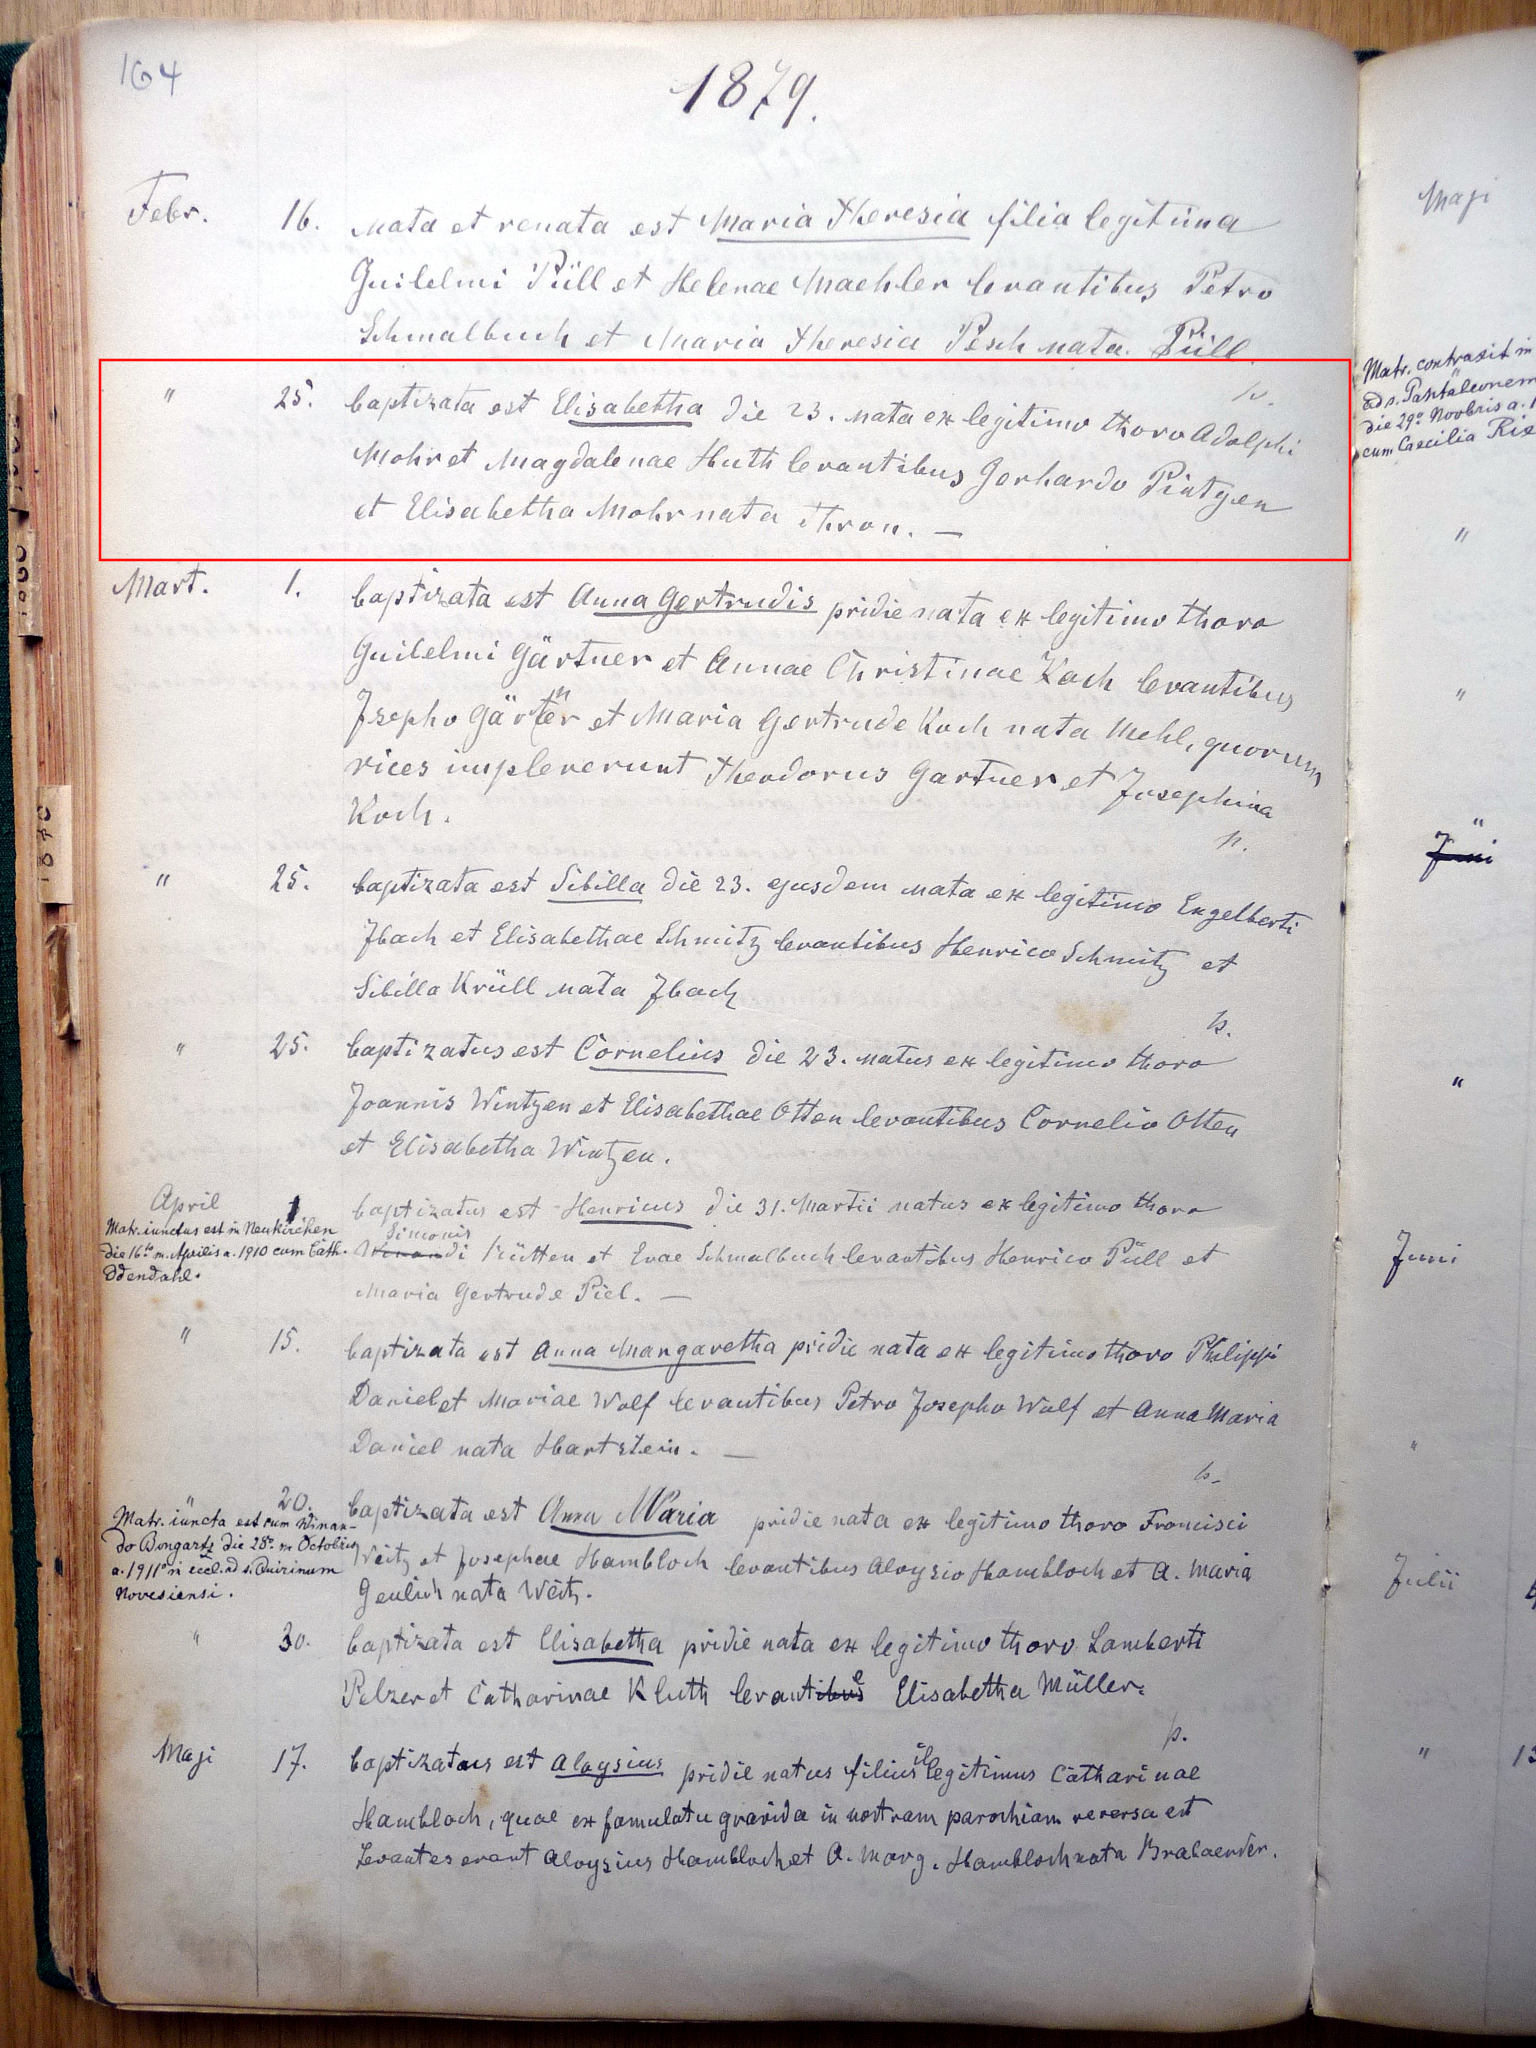 164
1879.
Febr. 16. Nata et renata est Maria Theresia filia legitima
Guilelmi Püll et Helenae Maehler levantibus Petro
Schmalbuch et Maria Theresia Pesch nata Püll
" 25. baptizata est Elisabetha die 23. nata ex legitimo thoro Adolphi
Mohr et Magdalenae Huth levantibus Gerhardo Pintgen
et Elisabetha Mohr nata Thron. —
Mart. 1. baptizata est Anna Gertrudis pridie nata ex legitimo thoro
Guilelmi Gärtner et Annae Christinae Koch levantibus
Josepho Gärtner et Maria Gertrude Koch nata Mehl, quorum
vices impleverunt Theodorus Gartner et Josephina
Koch.
" 25. baptizata est Sibilla die 23. ejusdem nata ex legitimo Engelberti
Jbach et Elisabethae Schmitz levantibus Henrico Schmitz et
Sibilla Krüll nata Jbach
" 25. baptizatus est Cornelius die 23. natus ex legitimo thoro
Joannis Wintzen et Elisabethae Otten levantibus Cornelio Otten
et Elisabetha Wintzen.
April 1 baptizatus est Henricus die 31. Martii natus ex legitimo thoro
Simonis
Winandi Hütten et Evae Schmalbuch levantibus Henrico Püll et
Maria Gertrude Piel. —
Matr. iunctus est in Neukirchen
die 16to m. Aprilis a. 1910 cum Cath.
Odendahl.
" 15. baptizata est Anna Margaretha pridie nata ex legitimo thoro Philippi
Daniel et Mariae Wolf levantibus Petro Josepho Wolf et Anna Maria
Daniel nata Hartstein. —
" 20. baptizata est Anna Maria pridie nata ex legitimo thoro Francisci
Weitz et Josephae Hambloch levantibus Aloysio Hambloch et A. Maria
Geulich nata Weitz.
Matr. iuncta est cum Winan-
do Bongartz die 28o m Octobris
a. 1911o in eccl. ad s. Quirinum
Novesiensi.
" 30. baptizata est Elisabetha pridie nata ex legitimo thoro Lamberti
Pelzer et Catharinae Kluth levantibus e Elisabetha Müller.
Maji 17. baptizatus est Aloysius pridie natus filius illegitimus Catharinae
Hambloch, quae ex famulatu gravida in nostram parochiam reversa est
Levantes erant Aloysius Hambloch et A. Marg. Hambloch nata Brabaender.
Maji
Matr. contraxit in
ad s. Pantaleonem
die 29o Novbris a. 1
cum Caecilia
"
"
"
Juni
"
Juni
"
Julii
" 13